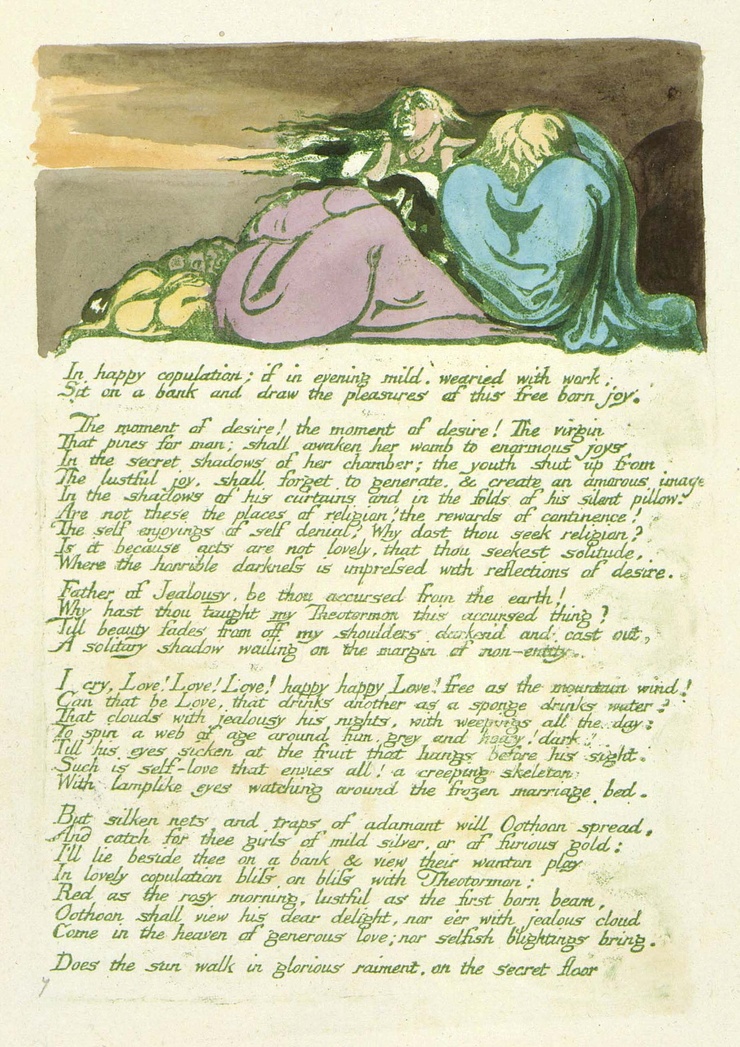 In happy copulation; if in evening mild, wearied with work;
Sit on a bank and draw the pleasures of this free born joy.
The moment of desire! the moment of desire! The virgin
That pines for man; shall awaken her womb to enormous joys
In the secret shadows of her chamber; the youth shut up from
The lustful joy, shall forget to generate, & create an amorous image
In the shadows of his curtains and in the folds of his silent pillow.
Are not these the places of religion? the rewards of continence!
The self enjoyings of self denial? Why dost thou seek religion?
Is it because acts are not lovely, that thou seekest solitude,
Where the horrible darkness is impressed with reflections of desire.
Father of Jealousy, be thou accursed from the earth!
Why hast thou taught my Theotormon this accursed thing?
Till beauty fades from off my shoulders darkend and cast out,
A solitary shadow wailing on the margin of non-entity.
I cry, Love! Love! Love! happy happy Love! free as the mountain wind!
Can that be Love, that drinks another as a sponge drinks water?
That clouds with jealousy his nights, with weepings all the day:
To spin a web of age around him, grey and hoary! dark!
Till his eyes sicken at the fruit that hangs before his sight.
Such is self-love that envies all! a creeping skeleton
With lamplike eyes watching around the frozen marriage bed.
But silken nets and traps of adamant will Oothoon spread,
And catch for thee girls of mild silver, or of furious gold;
I'll lie beside thee on a bank & view their wanton play
In lovely copulation bliss on bliss with Theotormon:
Red as the rosy morning, lustful as the first born beam,
Oothoon shall view his dear delight, nor e'er with jealous cloud
Come in the heaven of generous love; nor selfish blightings bring.
Does the sun walk in glorious raiment, on the secret floor
7